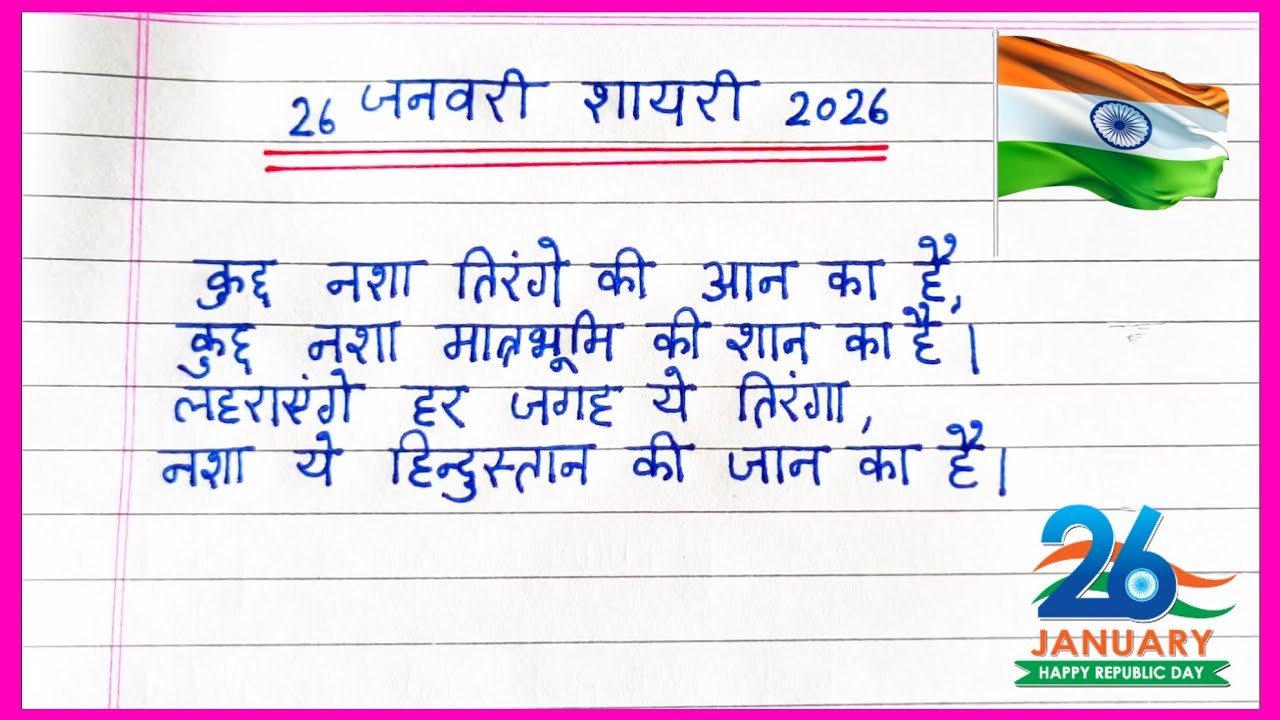 26 जनवरी शायरी 2026
कुछ नशा तिरंगे की आन का है,
कुछ नशा मातृभूमि की शान का है।
लहराएंगे हर जगह ये तिरंगा,
नशा ये हिन्दुस्तान की जान का है।
26
JANUARY
HAPPY REPUBLIC DAY